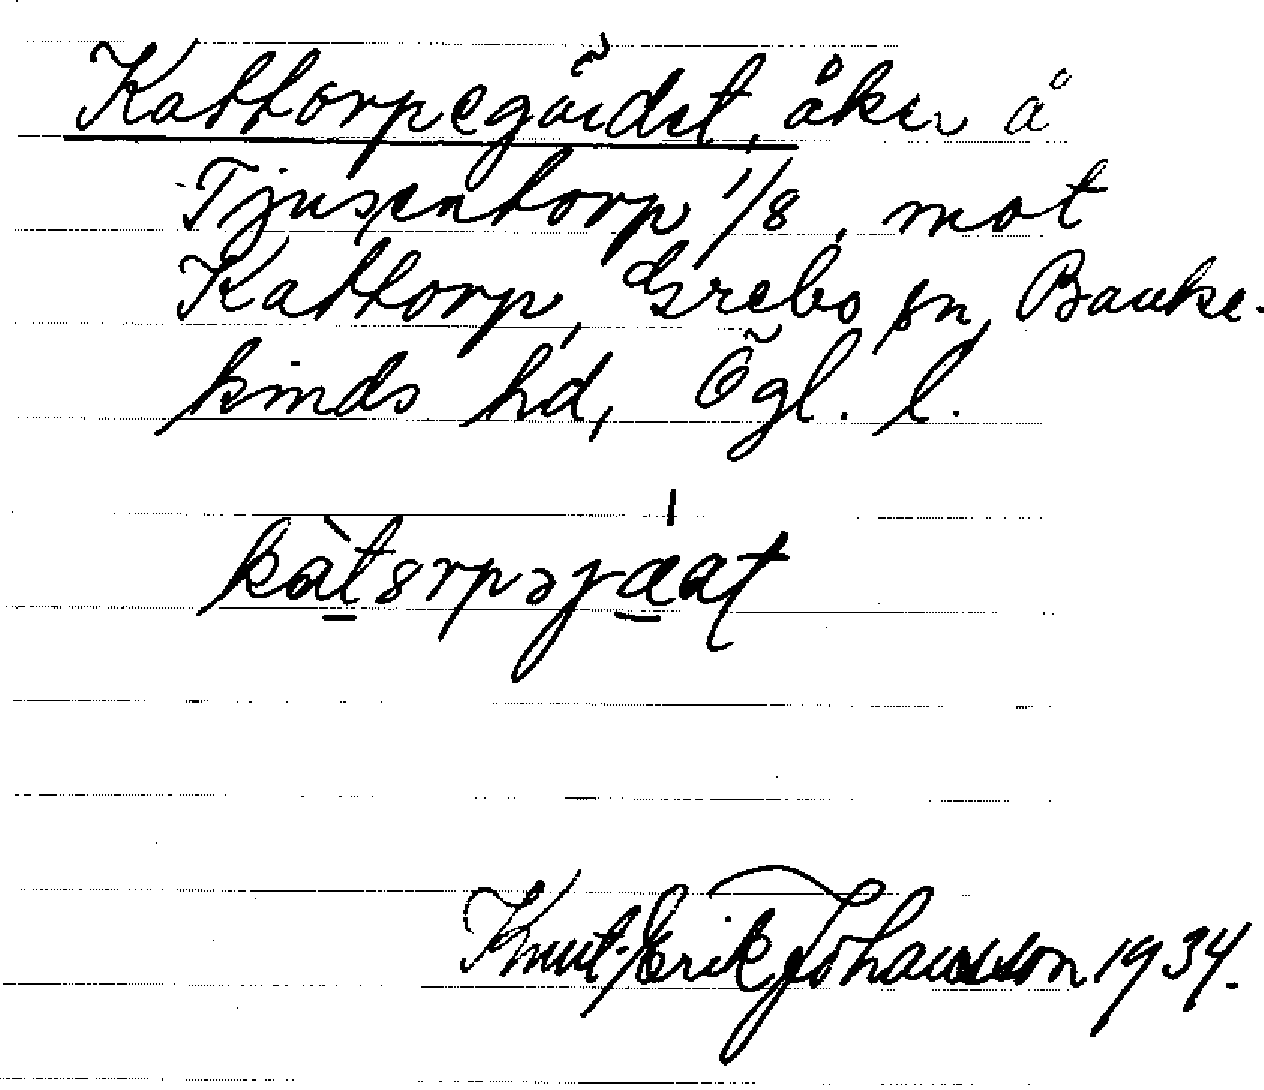 Kattorpegärdet, åker å
Tjusentorp 1/8, mot
Kattorp, Grebo sn, Banke-
kinds hd, Ögl. l.
Knut-Erik Johansson 1934.